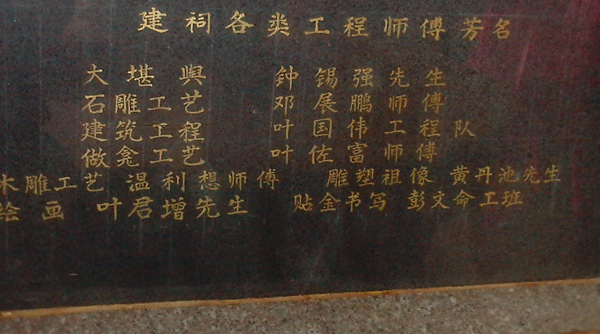 建祠各类工程师傅芳名
大堪舆 钟锡强先生
石雕工艺 邓展鹏师傅
建筑工程 叶国伟工程队
做龛工艺 叶佐富师傅
木雕工艺 温利想师傅 雕塑祖像 黄丹池先生
绘画 叶君增先生 贴金书写 彭文命工班